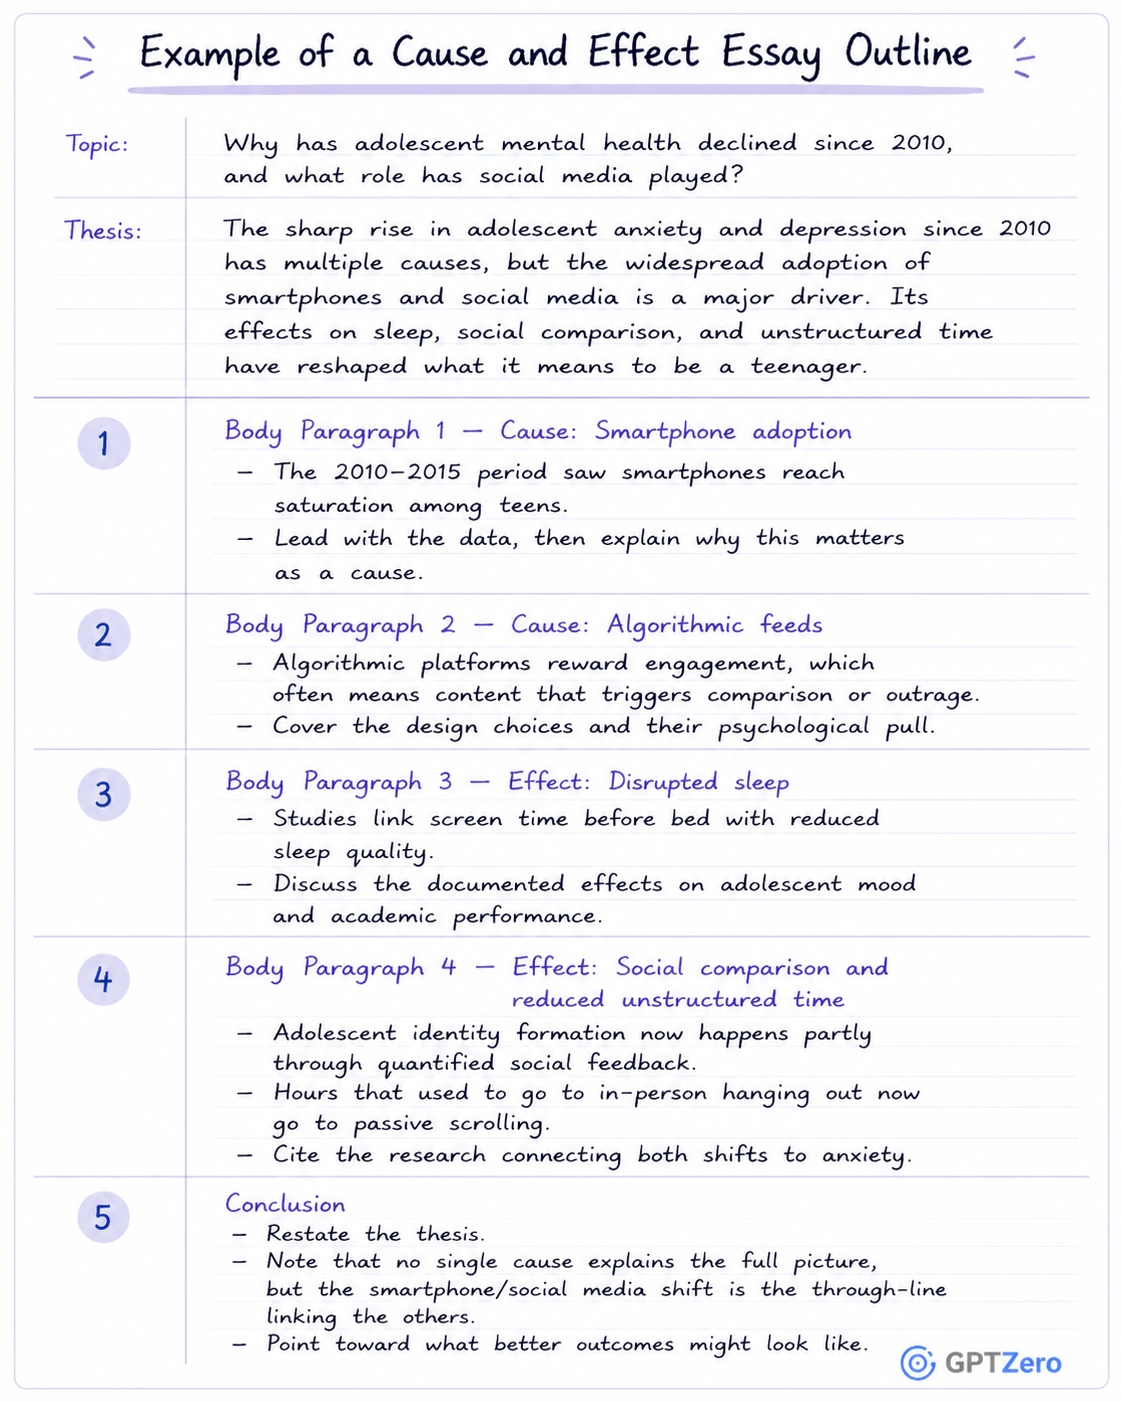 Example of a Cause and Effect Essay Outline
Topic:
Why has adolescent mental health declined since 2010,
and what role has social media played?
Thesis:
The sharp rise in adolescent anxiety and depression since 2010
has multiple causes, but the widespread adoption of
smartphones and social media is a major driver. Its
effects on sleep, social comparison, and unstructured time
have reshaped what it means to be a teenager.
1
Body Paragraph 1 — Cause: Smartphone adoption
– The 2010–2015 period saw smartphones reach
saturation among teens.
– Lead with the data, then explain why this matters
as a cause.
2
Body Paragraph 2 — Cause: Algorithmic feeds
– Algorithmic platforms reward engagement, which
often means content that triggers comparison or outrage.
– Cover the design choices and their psychological pull.
3
Body Paragraph 3 — Effect: Disrupted sleep
– Studies link screen time before bed with reduced
sleep quality.
– Discuss the documented effects on adolescent mood
and academic performance.
4
Body Paragraph 4 — Effect: Social comparison and
reduced unstructured time
– Adolescent identity formation now happens partly
through quantified social feedback.
– Hours that used to go to in-person hanging out now
go to passive scrolling.
– Cite the research connecting both shifts to anxiety.
5
Conclusion
– Restate the thesis.
– Note that no single cause explains the full picture,
but the smartphone/social media shift is the through-line
linking the others.
– Point toward what better outcomes might look like.
GPTZero